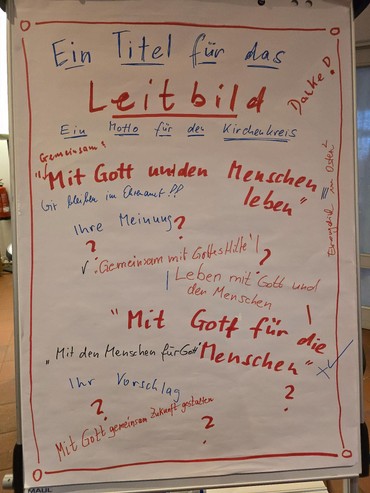 Ein Titel für das
Leitbild
Danke!
Ein Motto für den Kirchenkreis
Gemeinsam
"Mit Gott und den Menschen
leben"
Wir bleiben im Ehrenamt!!
Evangelisch im Osten
Ihre Meinung?
?
✓ Gemeinsam mit Gottes Hilfe! ?
Leben mit Gott und
den Menschen
"Mit Gott für die
Menschen"
"Mit den Menschen für Gott"
Ihr Vorschlag
? ?
Mit Gott gemeinsam Zukunft gestalten
?
MAUL